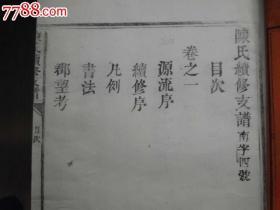 7788.com
陳氏續修支譜南字四號
目次
卷之一
源流序
續修序
凡例
書法
郡望考
陳氏續修支譜
目次